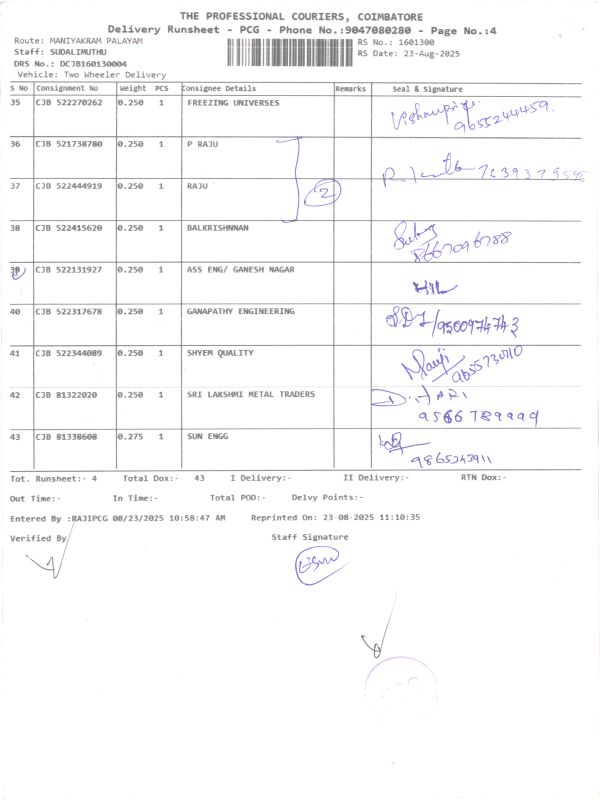 THE PROFESSIONAL COURIERS, COIMBATORE
Delivery Runsheet - PCG - Phone No.:9047080280 - Page No.:4
Route: MANIYAKRAM PALAYAM RS No.: 1601300
Staff: SUDALIMUTHU RS Date: 23-Aug-2025
DRS No.: DCJB160130004
Vehicle: Two Wheeler Delivery
S No Consignment No Weight PCS Consignee Details Remarks Seal & Signature
35 CJB 522270262 0.250 1 FREEZING UNIVERSES
9655244459.
36 CJB 521738780 0.250 1 P RAJU
37 CJB 522444919 0.250 1 RAJU 2
38 CJB 522415620 0.250 1 BALKRISHNNAN
8667096788
39 CJB 522131927 0.250 1 ASS ENG/ GANESH NAGAR
40 CJB 522317678 0.250 1 GANAPATHY ENGINEERING
41 CJB 522344089 0.250 1 SHYEM QUALITY
42 CJB 81322020 0.250 1 SRI LAKSHMI METAL TRADERS D.HARI
9566789999
43 CJB 81338608 0.275 1 SUN ENGG
Tot. Runsheet:- 4 Total Dox:- 43 I Delivery:- II Delivery:- RTN Dox:-
Out Time:- In Time:- Total POD:- Delvy Points:-
Entered By :RAJIPCG 08/23/2025 10:58:47 AM Reprinted On: 23-08-2025 11:10:35
Verified By Staff Signature